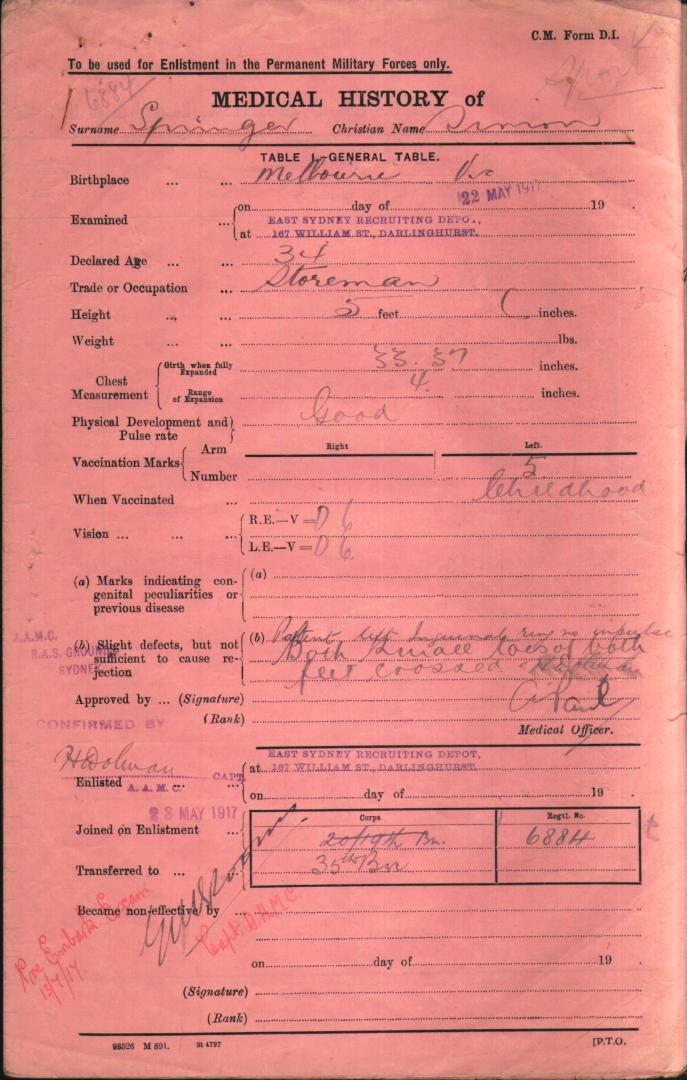 C.M. Form D.I.
To be used for Enlistment in the Permanent Military Forces only.
6884
MEDICAL HISTORY of
Surname Springer Christian Name Simon
TABLE I. GENERAL TABLE.
Birthplace ... ... Melbourne Vic
22 MAY 1917
Examined ... on day of 19
at EAST SYDNEY RECRUITING DEPOT, 167 WILLIAM ST., DARLINGHURST.
Declared Age ... ... 34
Trade or Occupation ... Storeman
Height ... ... 5 feet inches.
Weight ... ... lbs.
Chest Measurement Girth when fully Expanded 33. 37 inches.
Range of Expansion 4 inches.
Physical Development and Pulse rate Good
Right Left.
Vaccination Marks Arm
Number 5
When Vaccinated ... Childhood
Vision ... ... ... R.E.—V = D 6
L.E.—V = D 6
(a) Marks indicating congenital peculiarities or previous disease (a)
(b) Slight defects, but not sufficient to cause rejection (b) Patent left Inguinal ring no impulse
Both small toes of both
feet crossed
A.A.M.C.
R.A.S. GROUNDS
SYDNEY
Approved by ... (Signature) Paul
(Rank)
Medical Officer.
CONFIRMED BY
H Dolman CAPT.
A.A.M.C.
23 MAY 1917
Enlisted ... at EAST SYDNEY RECRUITING DEPOT, 167 WILLIAM ST., DARLINGHURST.
on day of 19
Corps. Regtl. No.
Joined on Enlistment ... 20/19th Bn. 6884
Transferred to ... ... 35th Bn
Became non-effective by ...
Capt. A.A.M.C.
Pre Embark Exam
13/7/17
on day of 19
(Signature)
(Rank)
98526 M 891. St 4797 [P.T.O.